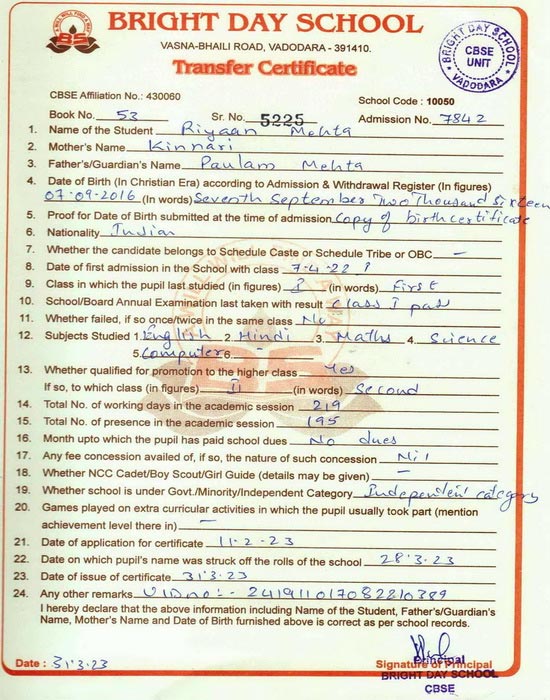 BRIGHT DAY SCHOOL
VASNA-BHAILI ROAD, VADODARA - 391410.
Transfer Certificate
BRIGHT DAY SCHOOL
CBSE
UNIT
VADODARA
CBSE Affiliation No.: 430060
School Code : 10050
Book No. 53 Sr. No. 5225 Admission No. 7842
1. Name of the Student Riyaan Mehta
2. Mother's Name Kinnari
3. Father's/Guardian's Name Paulam Mehta
4. Date of Birth (In Christian Era) according to Admission & Withdrawal Register (In figures)
07-09-2016 (In words) Seventh September Two Thousand sixteen
5. Proof for Date of Birth submitted at the time of admission Copy of birth certificate
6. Nationality Indian
7. Whether the candidate belongs to Schedule Caste or Schedule Tribe or OBC –
8. Date of first admission in the School with class 7-4-22 I
9. Class in which the pupil last studied (in figures) I (in words) First
10. School/Board Annual Examination last taken with result Class I pass
11. Whether failed, if so once/twice in the same class No
12. Subjects Studied 1. English 2. Hindi 3. Maths 4. Science
5. Computer 6. –
13. Whether qualified for promotion to the higher class Yes
If so, to which class (in figures) II (in words) Second
14. Total No. of working days in the academic session 219
15. Total No. of presence in the academic session 195
16. Month upto which the pupil has paid school dues No dues
17. Any fee concession availed of, if so, the nature of such concession Nil
18. Whether NCC Cadet/Boy Scout/Girl Guide (details may be given) –
19. Whether school is under Govt./Minority/Independent Category Independent category
20. Games played on extra curricular activities in which the pupil usually took part (mention
achievement level there in) –
21. Date of application for certificate 11-2-23
22. Date on which pupil's name was struck off the rolls of the school 28·3·23
23. Date of issue of certificate 31·3·23
24. Any other remarks UID no:- 241911017082210389
I hereby declare that the above information including Name of the Student, Father's/Guardian's
Name, Mother's Name and Date of Birth furnished above is correct as per school records.
Date : 31·3·23
Signature of Principal
Principal
BRIGHT DAY SCHOOL
CBSE